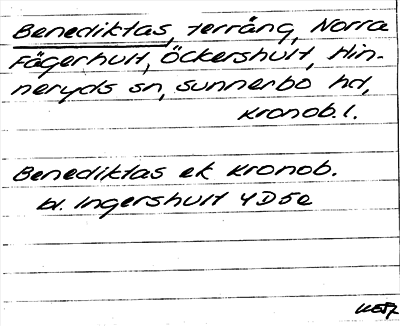 Benediktas, terräng, Norra
Fägerhult, Öckershult, Hin-
neryds sn, Sunnerbo hd,
Kronob. l.
Benediktas ek Kronob.
bl. Ingershult 4D5e